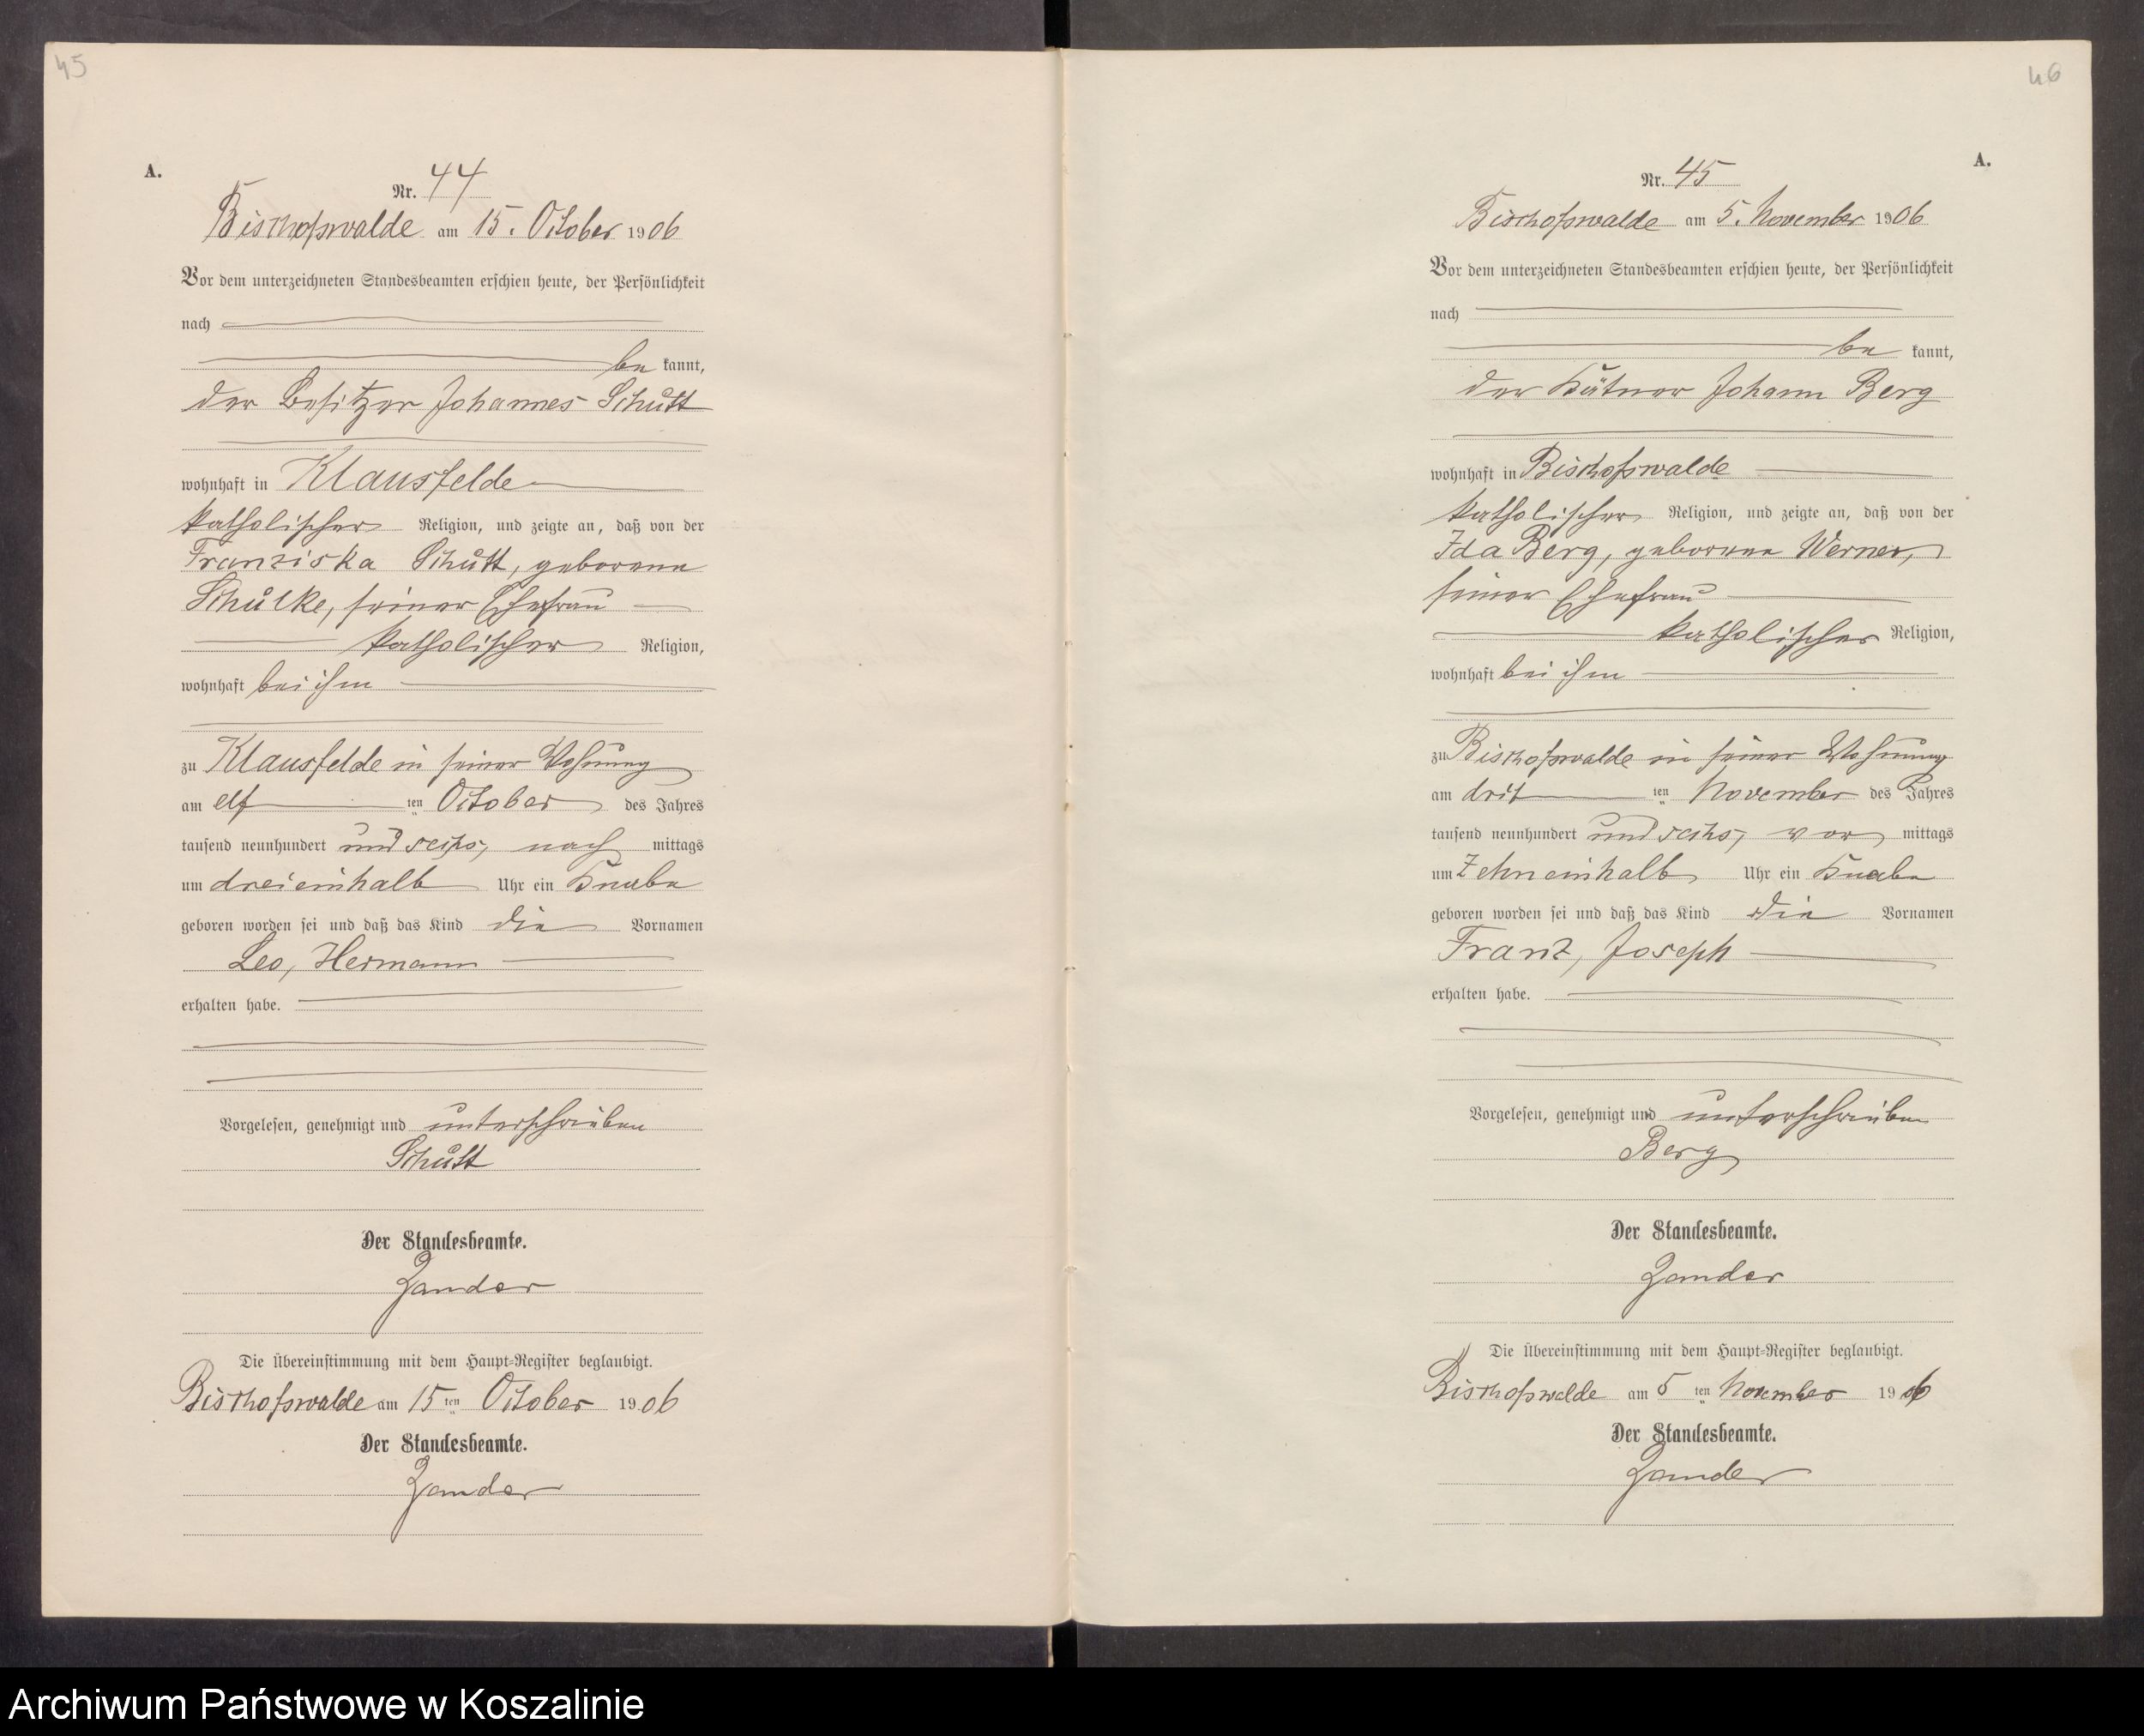 45
A.
Nr. 44
Bischofswalde am 15. October 1906
Vor dem unterzeichneten Standesbeamten erschien heute, der Persönlichkeit
nach
be kannt,
der Besitzer Johannes Schütt
wohnhaft in Klausfelde
katholischer Religion, und zeigte an, daß von der
Franziska Schütt, geborene
Schülke, seiner Ehefrau
katholischer Religion,
wohnhaft bei ihm
zu Klausfelde in seiner Wohnung
am elf ten October des Jahres
tausend neunhundert und sechs, nach mittags
um dreieinhalb Uhr ein Knabe
geboren worden sei und daß das Kind die Vornamen
Leo, Hermann
erhalten habe.
Vorgelesen, genehmigt und unterschrieben
Schütt
Der Standesbeamte.
Zander
Die Übereinstimmung mit dem Haupt-Register beglaubigt.
Bischofswalde am 15 ten October 1906
Der Standesbeamte.
Zander
46
A.
Nr. 45
Bischofswalde am 5. November 1906
Vor dem unterzeichneten Standesbeamten erschien heute, der Persönlichkeit
nach
be kannt,
der Kätner Johann Berg
wohnhaft in Bischofswalde
katholischer Religion, und zeigte an, daß von der
Ida Berg, geborene Werner,
seiner Ehefrau
katholischer Religion,
wohnhaft bei ihm
zu Bischofswalde in seiner Wohnung
am drit ten November des Jahres
tausend neunhundert und sechs, vor mittags
um Zehneinhalb Uhr ein Knabe
geboren worden sei und daß das Kind die Vornamen
Franz, Joseph
erhalten habe.
Vorgelesen, genehmigt und unterschrieben
Berg
Der Standesbeamte.
Zander
Die Übereinstimmung mit dem Haupt-Register beglaubigt.
Bischofswalde am 5 ten November 1906
Der Standesbeamte.
Zander
Archiwum Państwowe w Koszalinie